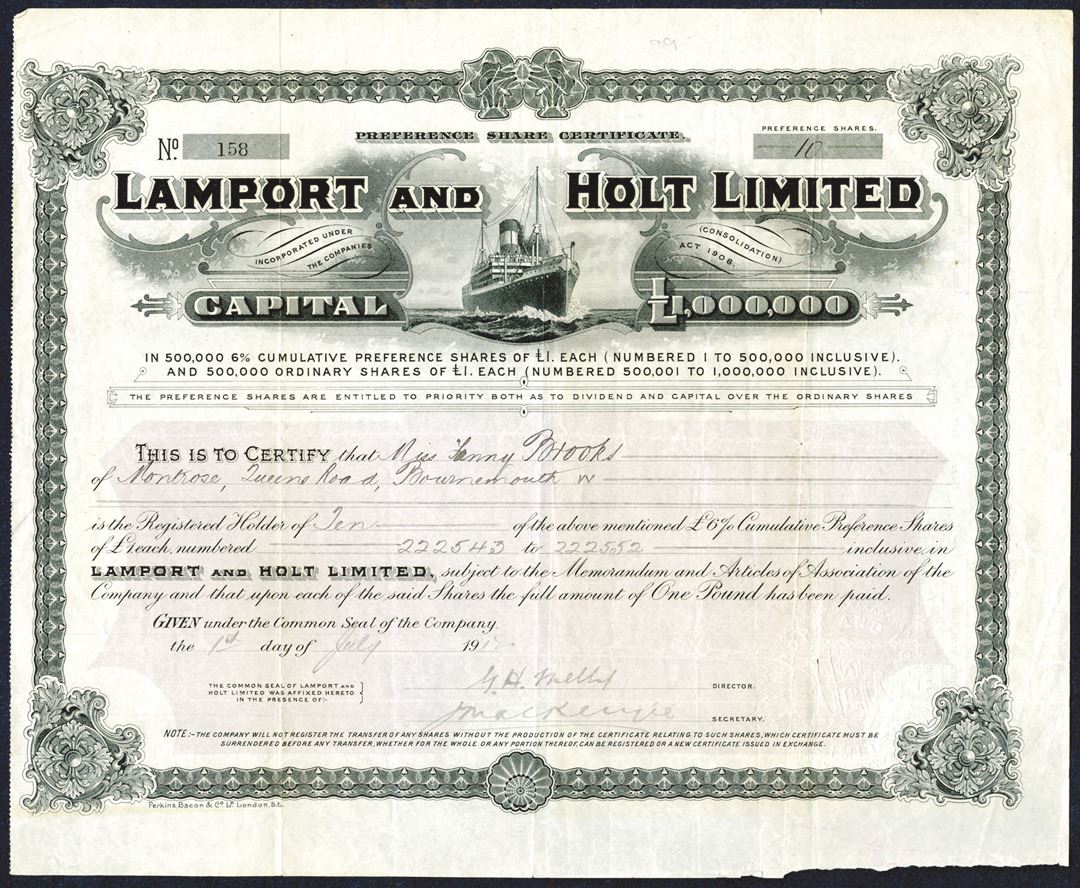 99
PREFERENCE SHARE CERTIFICATE.
No. 158
PREFERENCE SHARES.
10
LAMPORT AND HOLT LIMITED
INCORPORATED UNDER THE COMPANIES (CONSOLIDATION) ACT 1908.
CAPITAL £1,000,000
IN 500,000 6% CUMULATIVE PREFERENCE SHARES OF £1. EACH (NUMBERED 1 TO 500,000 INCLUSIVE).
AND 500,000 ORDINARY SHARES OF £1. EACH (NUMBERED 500,001 TO 1,000,000 INCLUSIVE).
THE PREFERENCE SHARES ARE ENTITLED TO PRIORITY BOTH AS TO DIVIDEND AND CAPITAL OVER THE ORDINARY SHARES
THIS IS TO CERTIFY that Miss Fanny Brooks
of Montrose, Queens Road, Bournemouth W
is the Registered Holder of Ten of the above mentioned £6% Cumulative Preference Shares
of £1 each, numbered 222543 to 222552 inclusive, in
LAMPORT AND HOLT LIMITED, subject to the Memorandum and Articles of Association of the
Company and that upon each of the said Shares the full amount of One Pound has been paid.
GIVEN under the Common Seal of the Company.
the 1st day of July 1912
THE COMMON SEAL OF LAMPORT AND
HOLT LIMITED WAS AFFIXED HERETO
IN THE PRESENCE OF:-
G. H. Melly DIRECTOR.
J Mackenzie SECRETARY.
NOTE:- THE COMPANY WILL NOT REGISTER THE TRANSFER OF ANY SHARES WITHOUT THE PRODUCTION OF THE CERTIFICATE RELATING TO SUCH SHARES, WHICH CERTIFICATE MUST BE
SURRENDERED BEFORE ANY TRANSFER, WHETHER FOR THE WHOLE OR ANY PORTION THEREOF, CAN BE REGISTERED OR A NEW CERTIFICATE ISSUED IN EXCHANGE.
Perkins, Bacon & Co Ld. London, E.C.